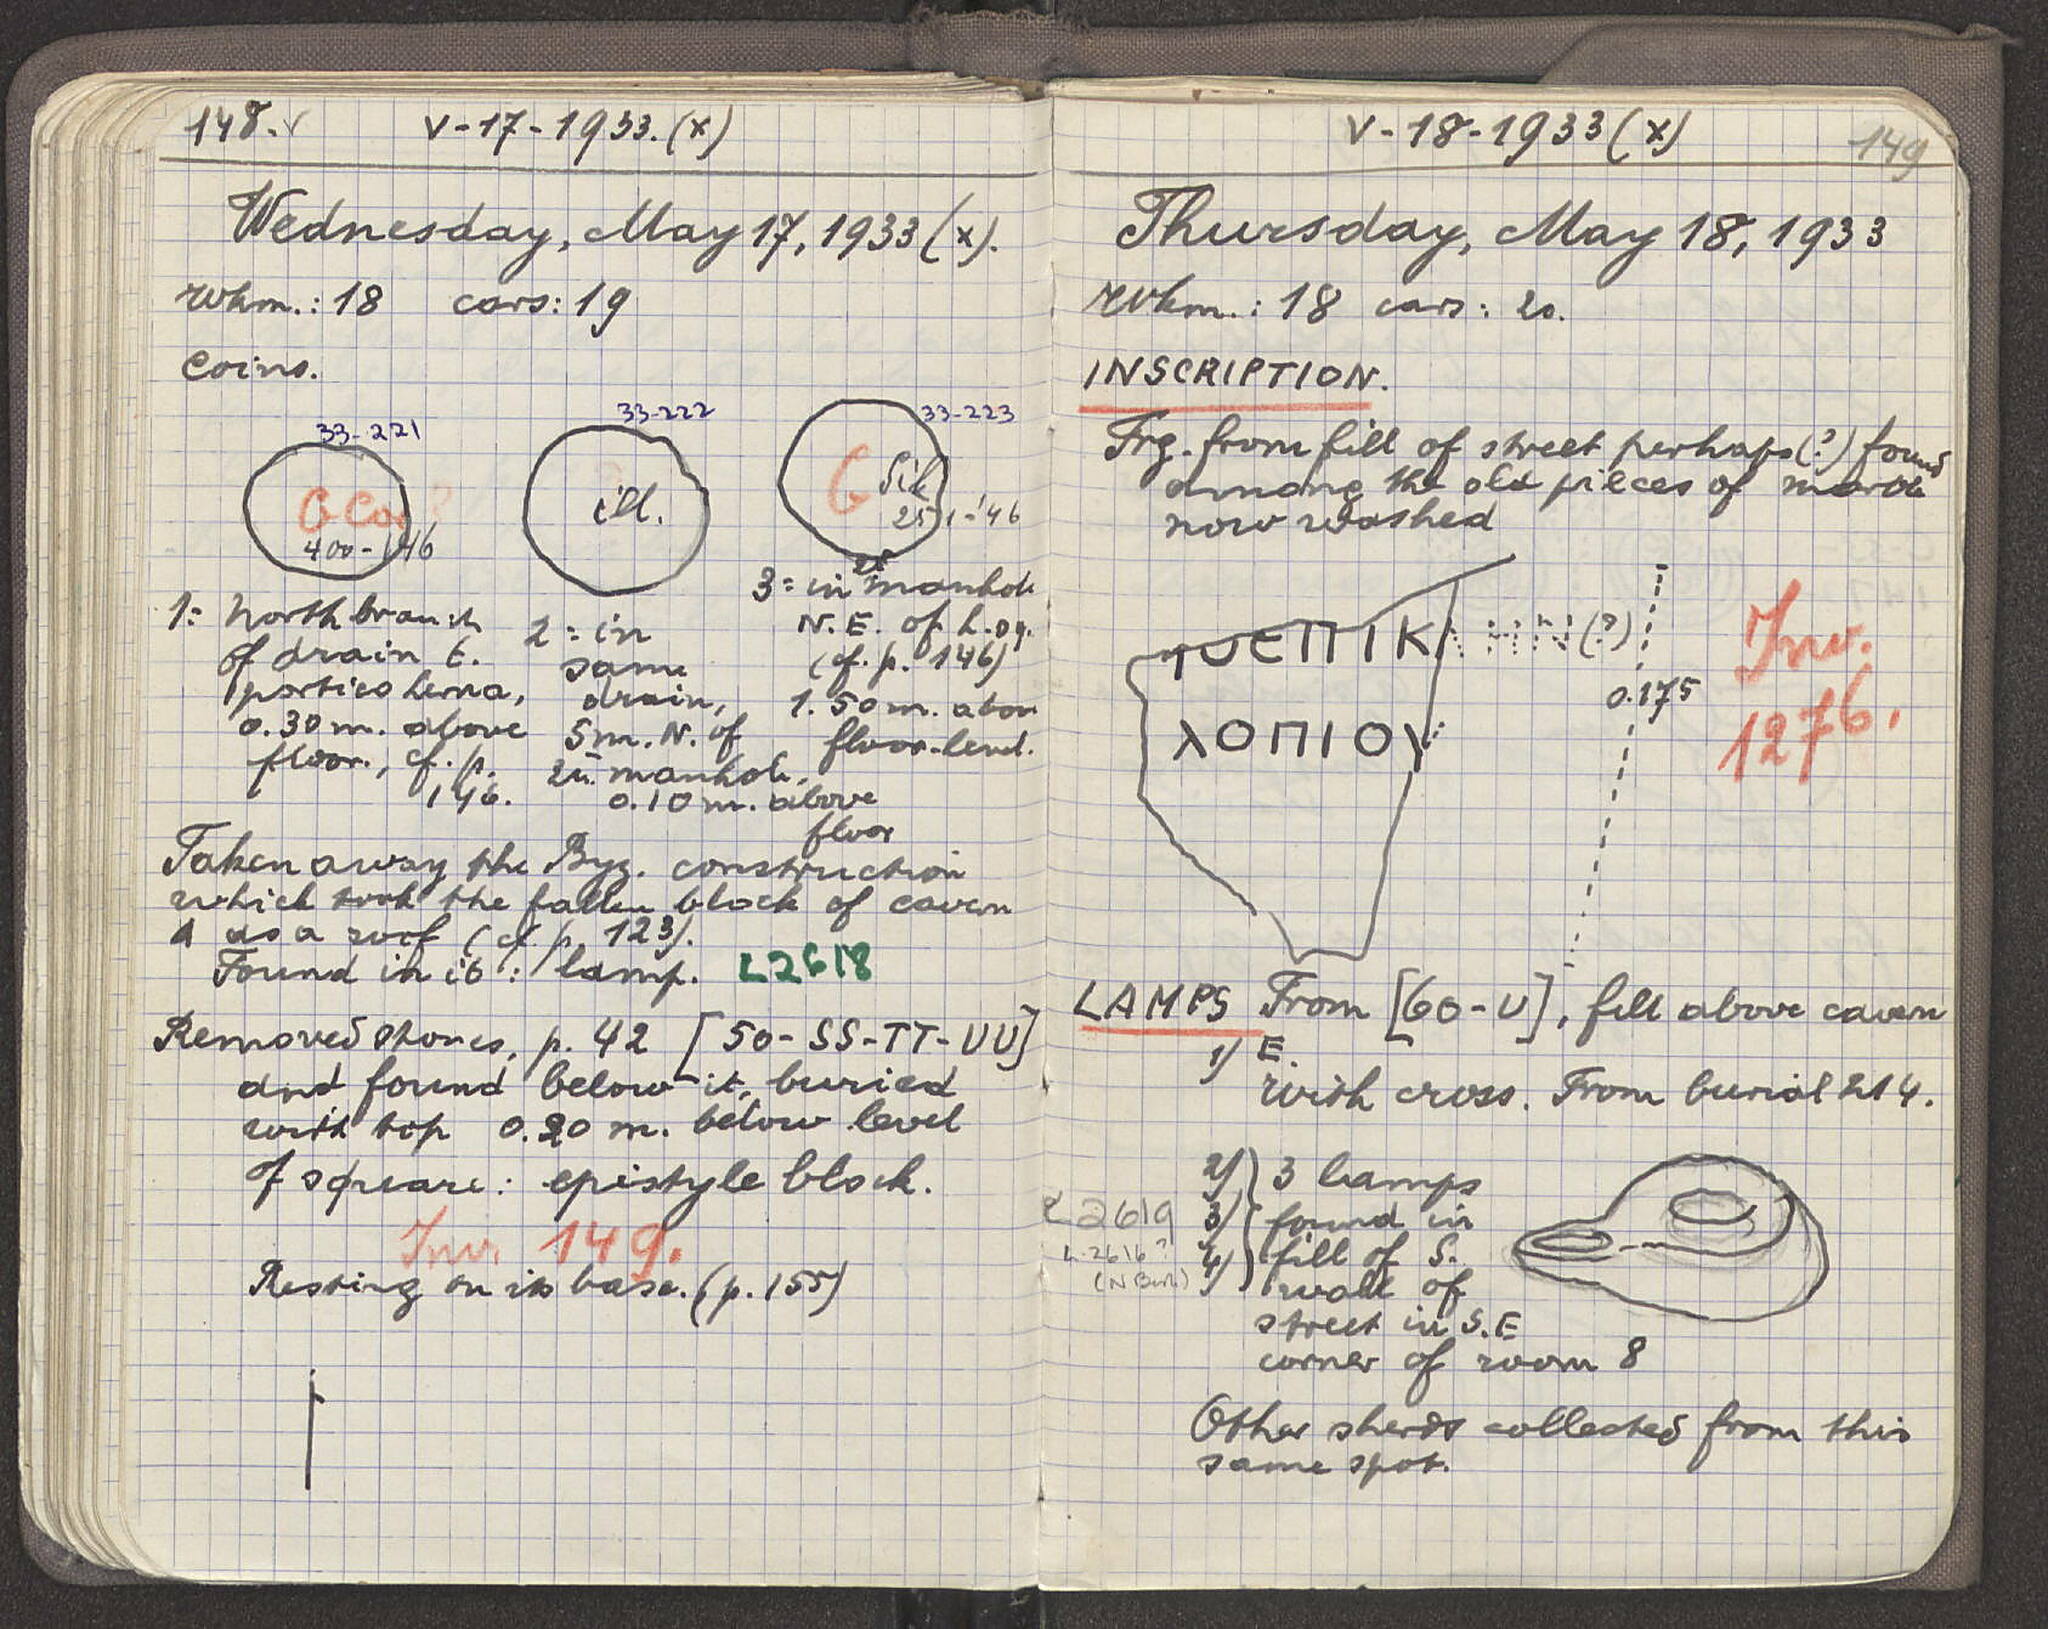 148. V-17-1933. (x)
Wednesday, May 17, 1933 (x).
Wkm.: 18 cars: 19
Coins.
33-221
G Cor ?
400-146
33-222
ill.
33-223
G Sik
251-146
1: North branch
of drain E.
portico Lerna,
0.30 m. above
floor, cf. p.
146.
2 = in
same
drain,
5 m. N. of
manhole,
0.10 m. above
floor
3 = in manhole
N.E. of
(cf. p. 146)
1.50 m. above
floor-level.
Taken away the Byz. construction
which took the fallen block of cavern
A as a roof (cf. p. 123).
Found in it: lamp. L2618
Removed stones, p. 42 [50-SS-TT-UU]
and found below it, buried
with top 0.20 m. below level
of square: epistyle block.
Inv. 149.
Resting on its base. (p. 155)
V-18-1933 (x) 149
Thursday, May 18, 1933
Wkm.: 18 cars: 20.
INSCRIPTION.
Frg. from fill of street perhaps (?) found
among the old pieces of marble
now washed
ΕΠΙΚΛΗΝ(?)
ΛΟΠΙΟΥ
0.175
Inv.
1276.
LAMPS From [60-U], fill above cavern
E.
1) With cross. From burial 214.
2) 3 lamps
L2619 3) found in
L-2616? 4) fill of S.
wall of
street in S.E
corner of room 8
Other sherds collected from this
same spot.